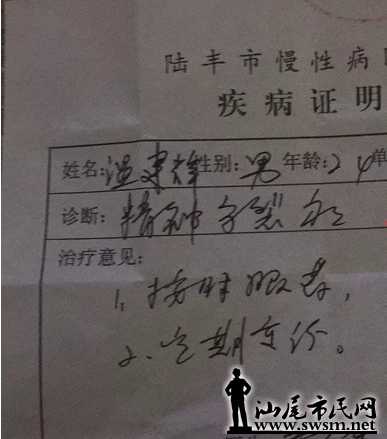 陆丰市慢性病
疾病证明
姓名:温建辉性别:男年龄:24单
诊断:精神分裂症
治疗意见:
1、按时服药,
2、定期复诊。
汕尾市民网
www.swsm.net